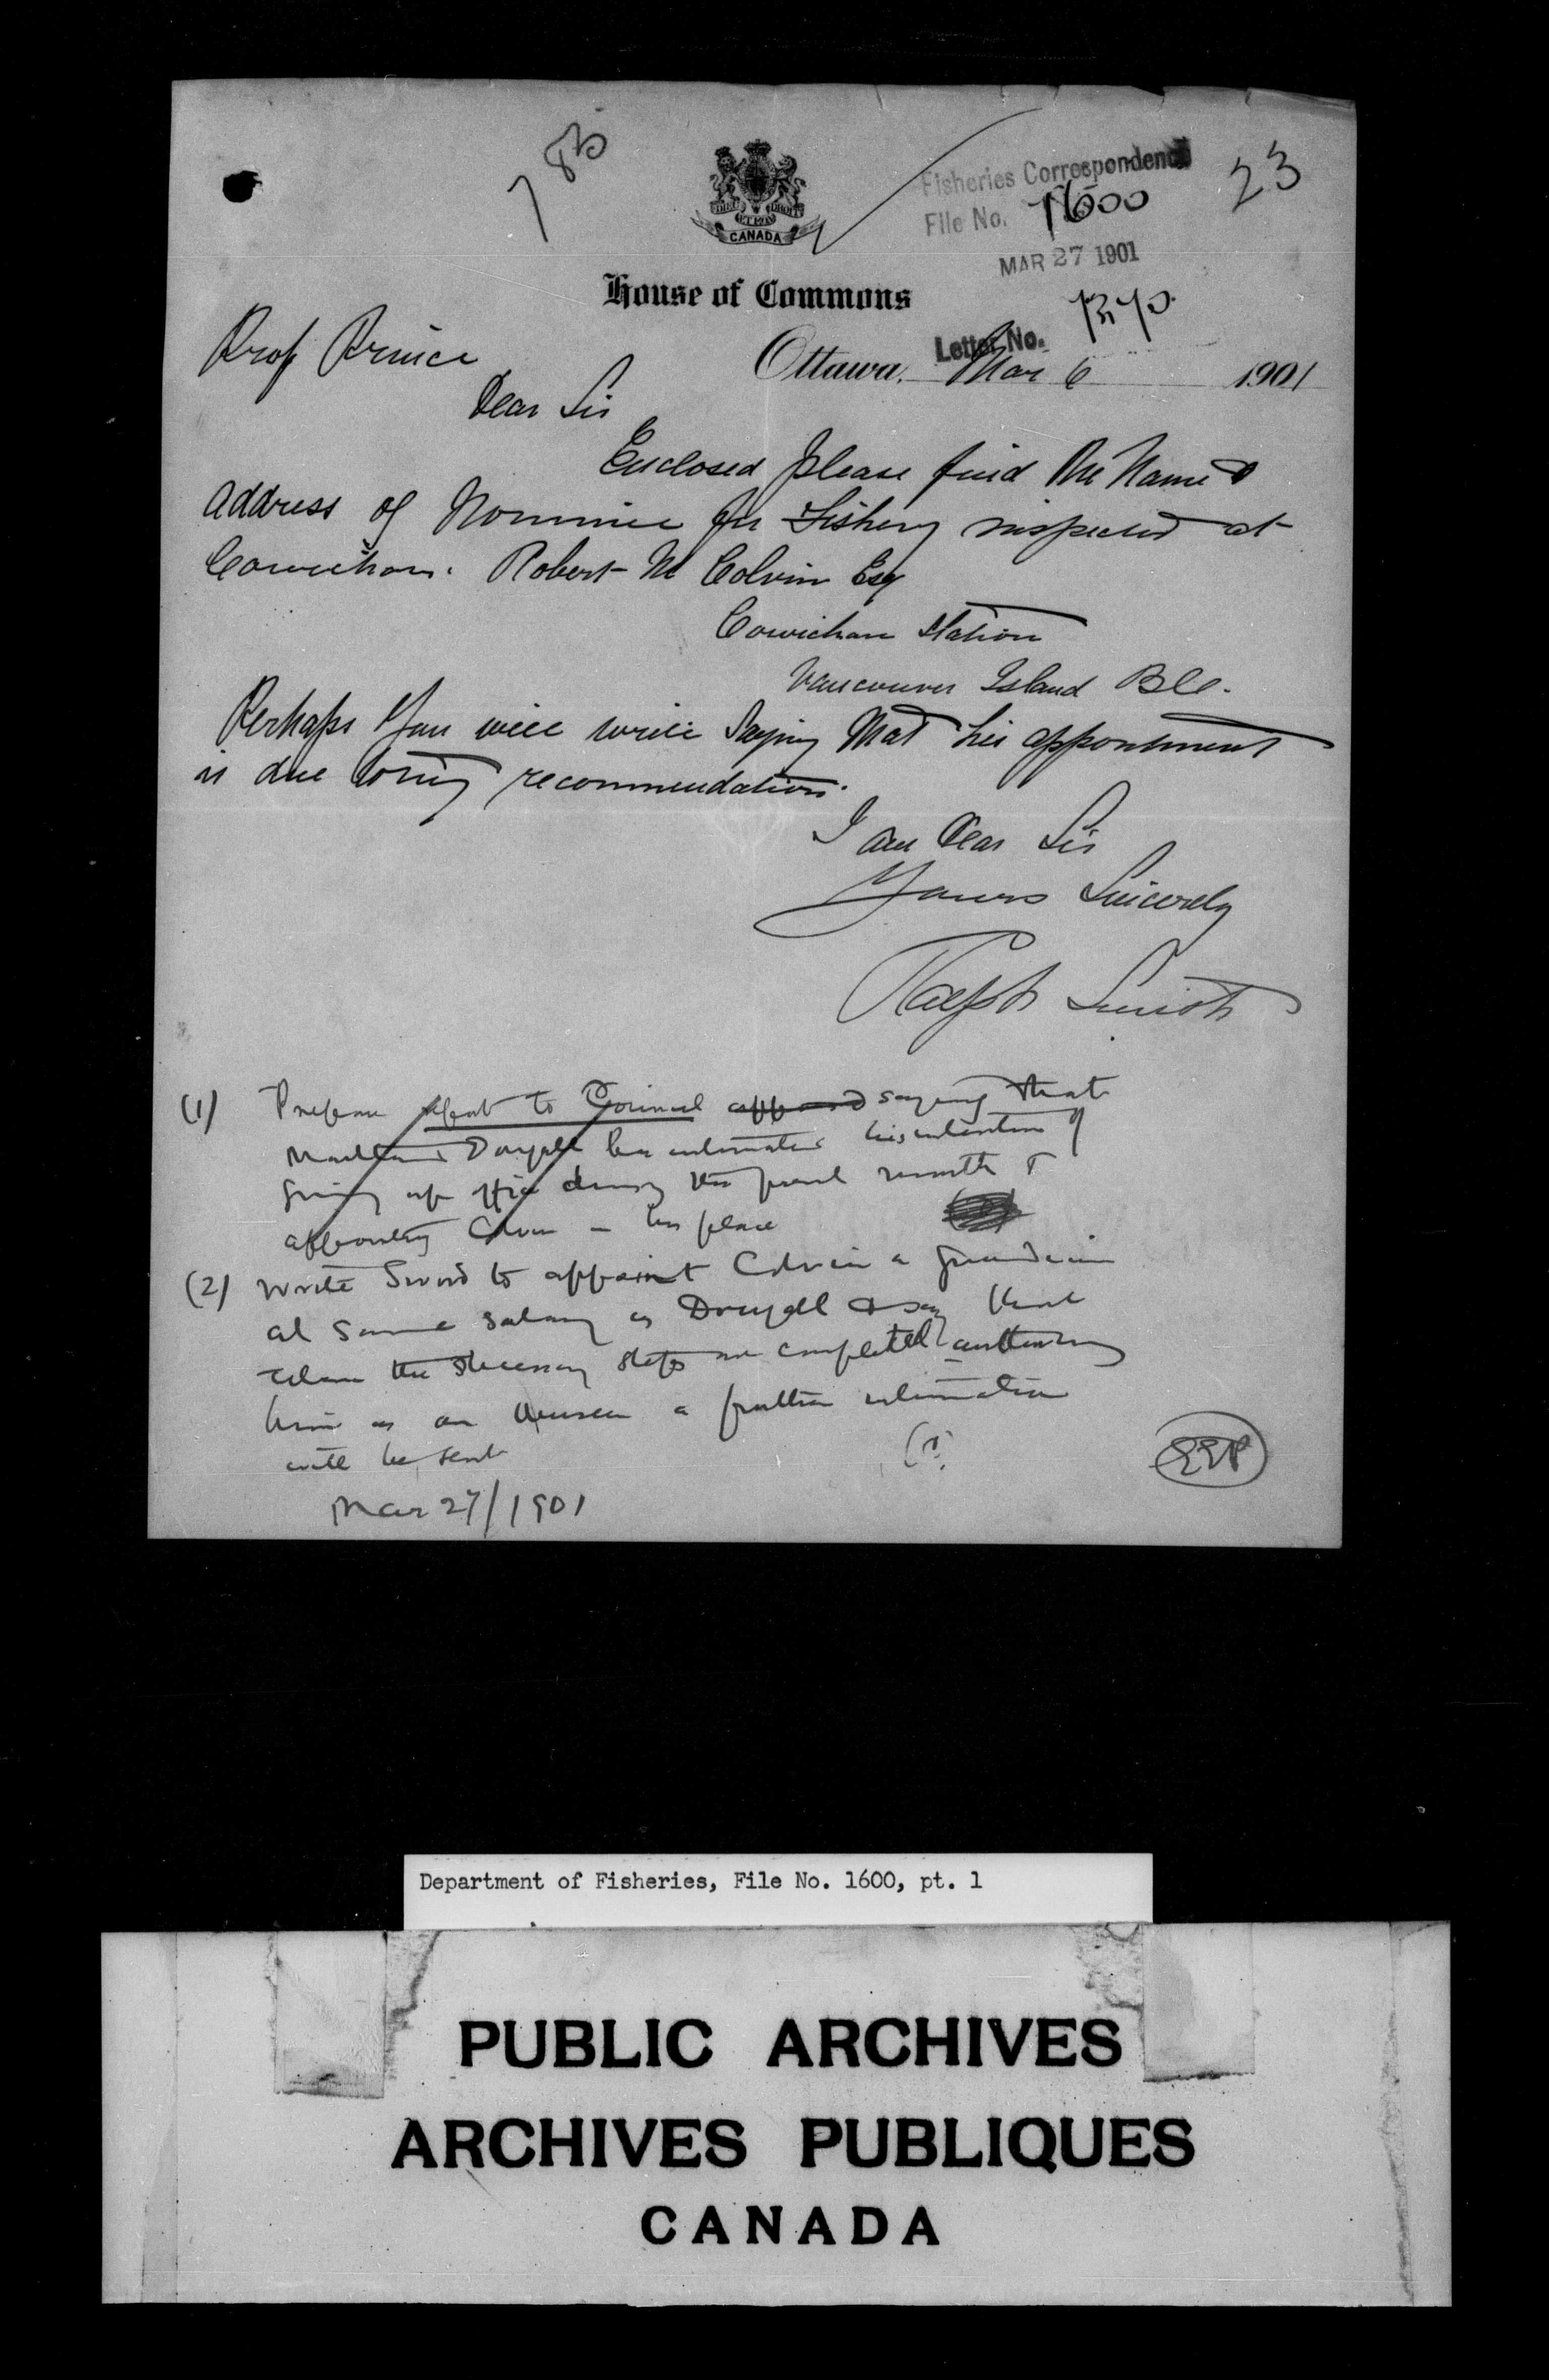 785
23
Fisheries Correspondence
File No. 1600
MAR 27 1901
DIEU ET MON DROIT
CANADA
House of Commons
Letter No.
Prof Prince
Ottawa, Mar 6 1901
Dear Sir
Enclosed please find the Name &
address of Nominee for Fishery inspector at
Cowichan. Robert M Colvin Esq
Cowichan Station
Vancouver Island B.C.
Perhaps you will write saying that his appointment
is due to my recommendation.
I am Dear Sir
Yours Sincerely
Ralph Smith
(1) Prepare report to Council saying that
Maitland Dougall has intimated his intention of
giving up office during the present month &
appointing Colvin in his place
(2) Write Sword to appoint Colvin a guardian
at same salary as Dougall & say that
when the necessary steps are completed authorizing
him as an Overseer a further intimation
will be sent
EEP
Mar 27/1901
Department of Fisheries, File No. 1600, pt. 1
PUBLIC ARCHIVES
ARCHIVES PUBLIQUES
CANADA